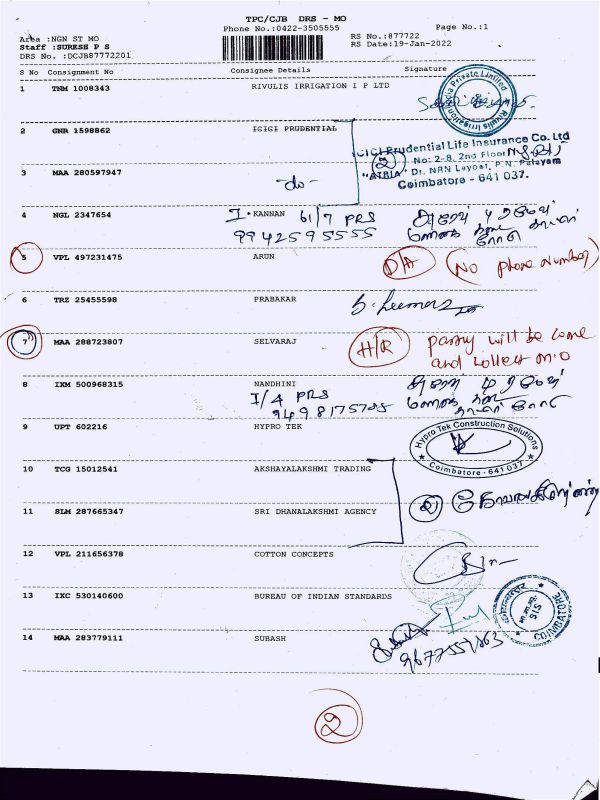 TPC/CJB DRS - MO
Phone No.:0422-3505555
Page No.:1
Area :NGN ST MO
RS No.:877722
Staff :SURESH P S
RS Date:19-Jan-2022
DRS No. :DCJB87772201
S No Consignment No Consignee Details Signature
1 TNM 1008343 RIVULIS IRRIGATION I P LTD
Rivulis Irrigation India Private Limited
2 GNR 1598862 ICICI PRUDENTIAL
ICICI Prudential Life Insurance Co. Ltd
No: 2-8, 2nd Floor
"ATRIA" Dr. NRN Layout, P.N. Palayam
Coimbatore - 641 037.
2
3 MAA 280597947 -do-
4 NGL 2347654 I. KANNAN 61/7 PRS
9942595555
5 VPL 497231475 ARUN D/A (No phone number)
6 TRZ 25455598 PRABAKAR
7 MAA 288723807 SELVARAJ H/R party will be come
and collect m.o
8 IXM 500968315 NANDHINI
I/4 PRS
9 UPT 602216 HYPRO TEK
Hypro Tek Construction Solutions
Coimbatore - 641 037
10 TCG 15012541 AKSHAYALAKSHMI TRADING
11 SLM 287665347 SRI DHANALAKSHMI AGENCY
12 VPL 211656378 COTTON CONCEPTS
13 IXC 530140600 BUREAU OF INDIAN STANDARDS
COIMBATORE
14 MAA 283779111 SUBASH
2